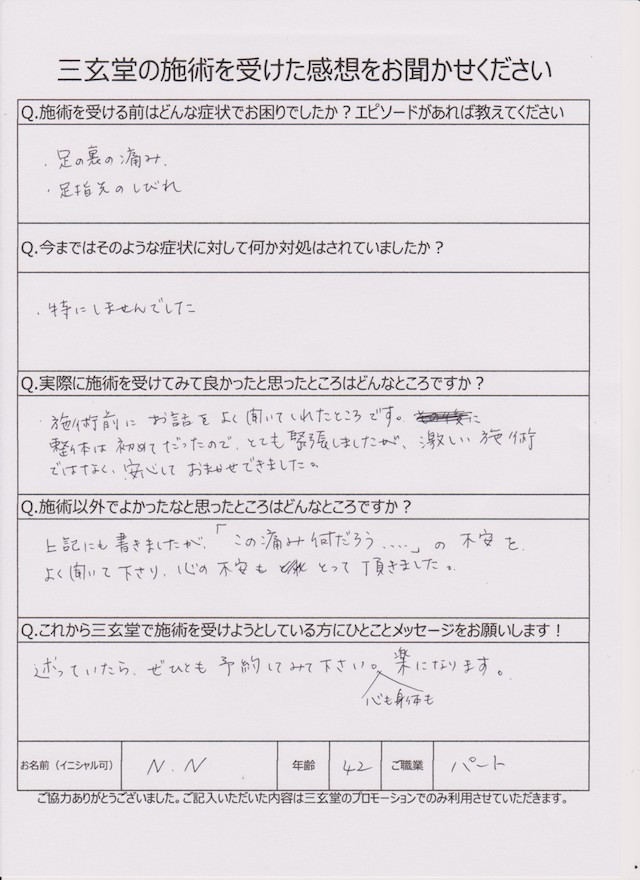 三玄堂の施術を受けた感想をお聞かせください
Q.施術を受ける前はどんな症状でお困りでしたか？エピソードがあれば教えてください
・足の裏の痛み.
・足指先のしびれ
Q.今まではそのような症状に対して何か対処はされていましたか？
・特にしませんでした
Q.実際に施術を受けてみて良かったと思ったところはどんなところですか？
・施術前に お話を よく聞いてくれたところです。
整体は初めてだったので、とても緊張しましたが、激しい施術
ではなく、安心して おまかせできました。
Q.施術以外でよかったなと思ったところはどんなところですか？
上記にも書きましたが、「この痛み何だろう....」の 不安を
よく聞いて下さり、心の不安も とって頂きました。
Q.これから三玄堂で施術を受けようとしている方にひとことメッセージをお願いします！
迷っていたら、ぜひとも 予約してみて下さい。楽になります。
心も身体も
お名前（イニシャル可） N.N 年齢 42 ご職業 パート
ご協力ありがとうございました。ご記入いただいた内容は三玄堂のプロモーションでのみ利用させていただきます。